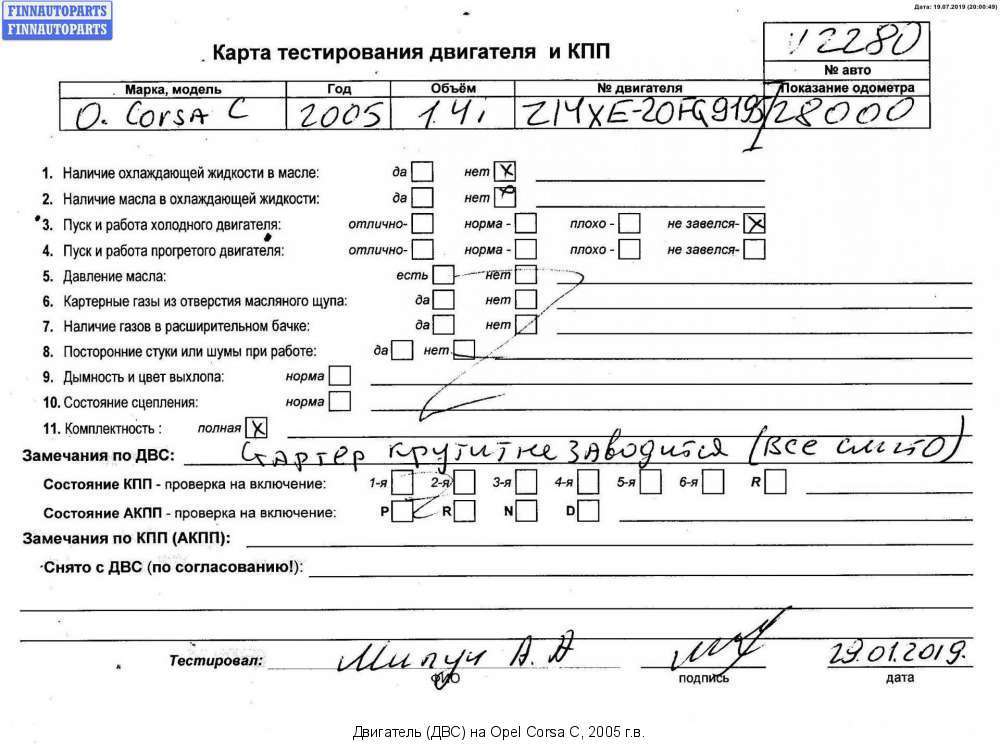 FINNAUTOPARTS
FINNAUTOPARTS
Дата: 19.07.2019 (20:00:49)
Карта тестирования двигателя и КПП
V2280
№ авто
Марка, модель Год Объём № двигателя Показание одометра
O. CORSA C 2005 1.4i Z14XE-20FG9195 128000
1. Наличие охлаждающей жидкости в масле: да нет X
2. Наличие масла в охлаждающей жидкости: да нет
3. Пуск и работа холодного двигателя: отлично- норма - плохо - не завелся- X
4. Пуск и работа прогретого двигателя: отлично- норма - плохо - не завелся-
5. Давление масла: есть нет
6. Картерные газы из отверстия масляного щупа: да нет
7. Наличие газов в расширительном бачке: да нет
8. Посторонние стуки или шумы при работе: да нет
9. Дымность и цвет выхлопа: норма
10. Состояние сцепления: норма
11. Комплектность : полная X
Замечания по ДВС: Стартер крутит не заводится (все слито)
Состояние КПП - проверка на включение: 1-я 2-я 3-я 4-я 5-я 6-я R
Состояние АКПП - проверка на включение: P R N D
Замечания по КПП (АКПП):
Снято с ДВС (по согласованию!):
Тестировал: А. А 29.01.2019.
ФИО подпись дата
Двигатель (ДВС) на Opel Corsa C, 2005 г.в.